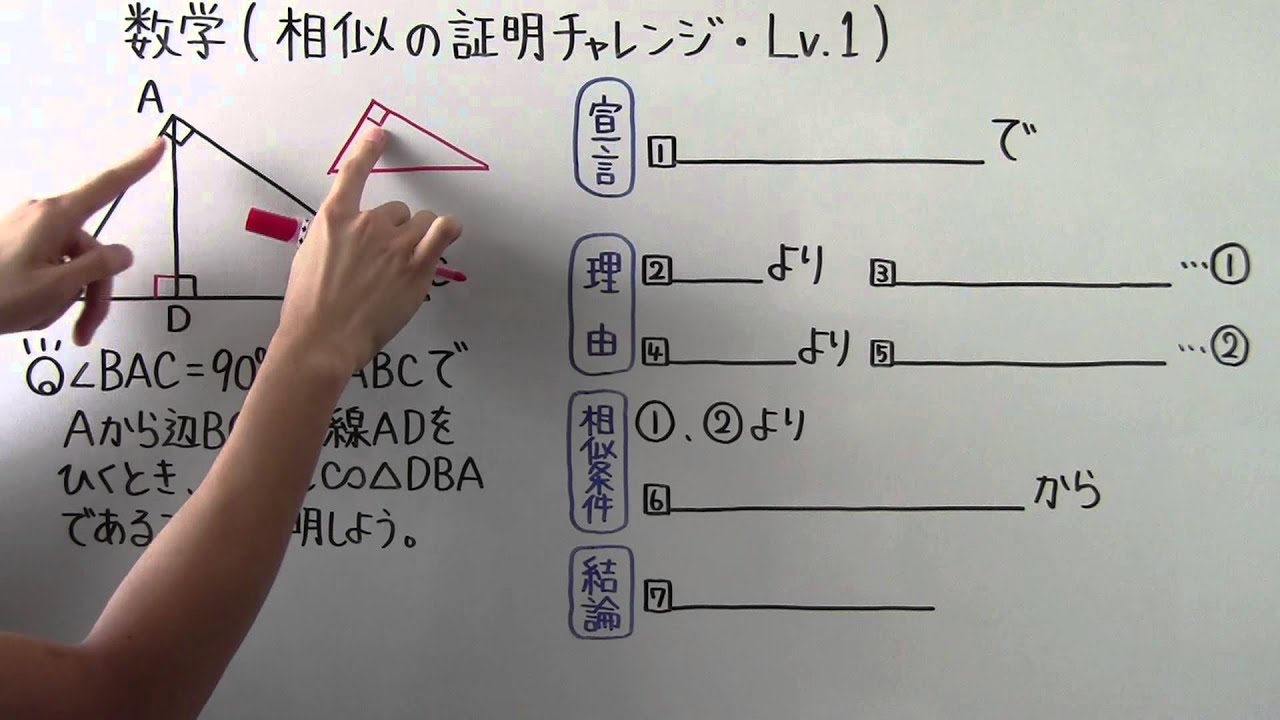 数学(相似の証明チャレンジ・Lv.1)
A
D
∠BAC=90° ABCで
Aから辺B 線ADを
ひくとき、 C∽△DBA
である 明しよう。
宣言
1 で
理由
2 より 3 …①
4 より 5 …②
相似条件
①、②より
6 から
結論
7